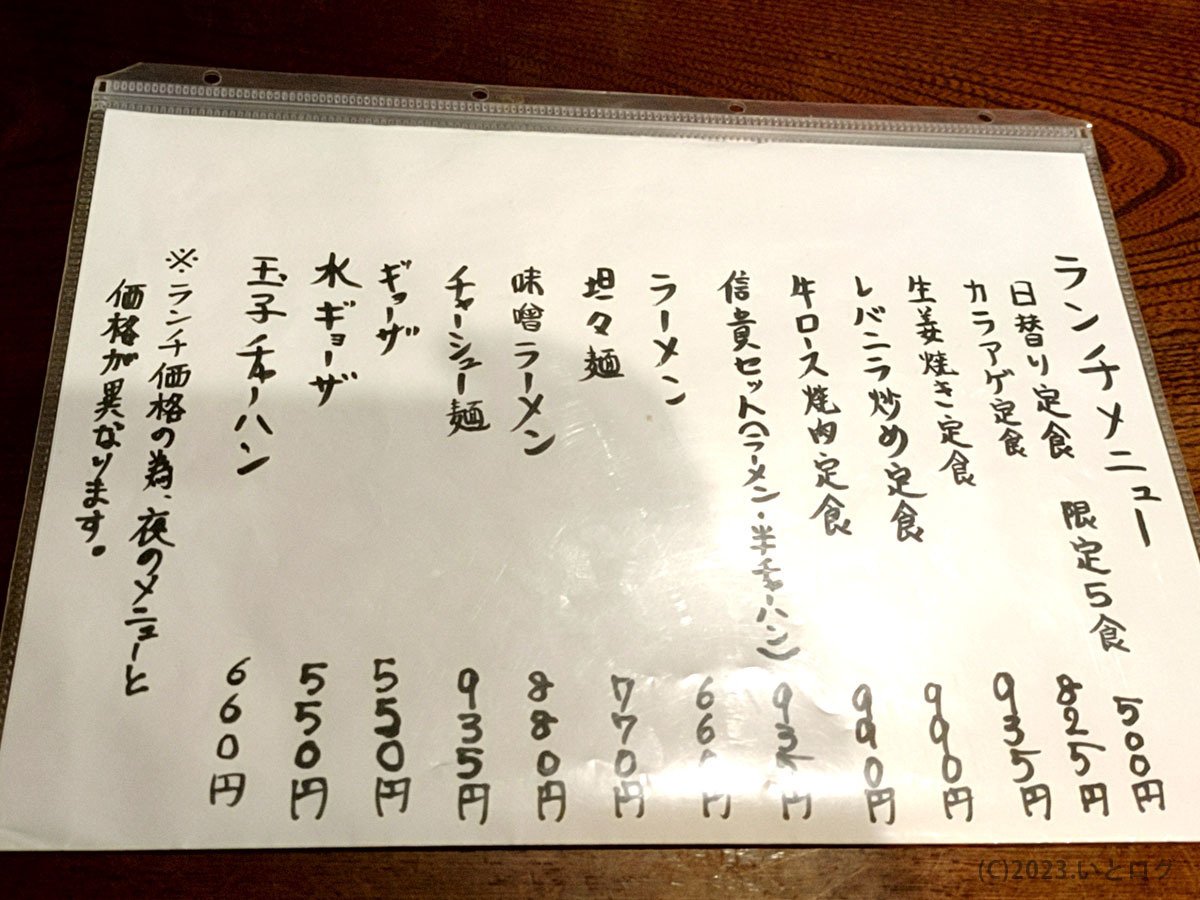 ランチメニュー
日替り定食 限定5食 500円
カラアゲ定食 825円
生姜焼き定食 935円
レバニラ炒め定食 990円
牛ロース焼肉定食 990円
信貴セット(ラーメン・半チャーハン) 935円
ラーメン 660円
坦々麺 770円
味噌ラーメン 880円
チャーシュー麺 935円
ギョーザ 550円
水ギョーザ 550円
玉子チャーハン 660円
※ランチ価格の為、夜のメニューと
価格が異なります。
(C)2023.いとログ